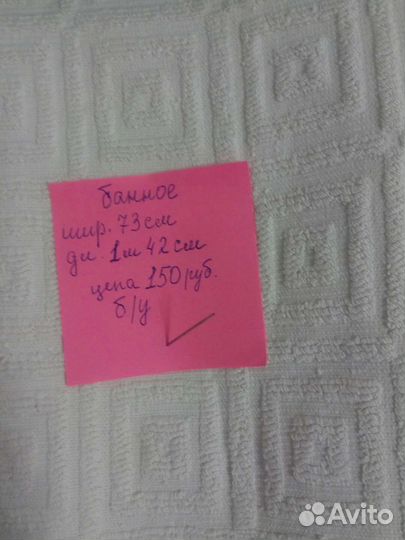 банное
шир. 73 см
дл. 1м 42 см
цена 150 руб.
б/у
Avito